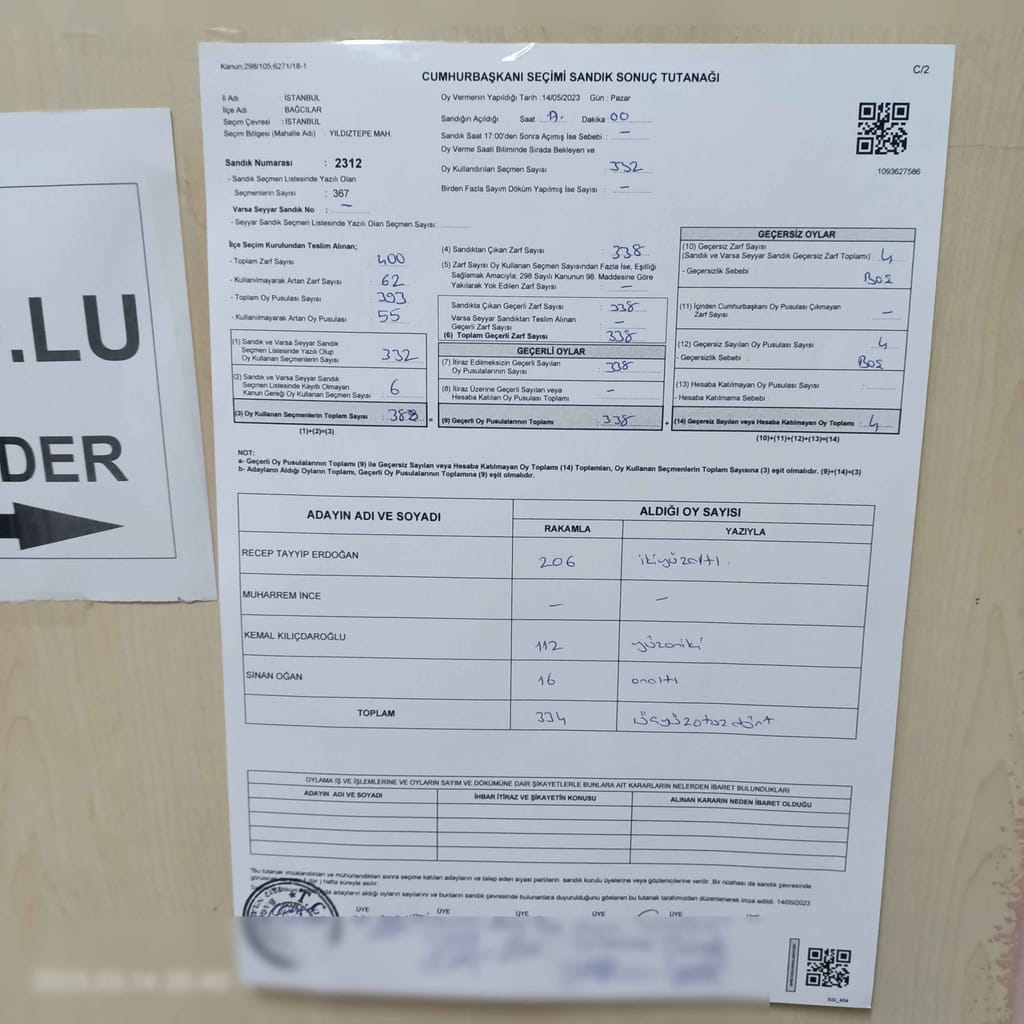 Kanun:298/105,6271/18-1
C/2
CUMHURBAŞKANI SEÇİMİ SANDIK SONUÇ TUTANAĞI
İl Adı : İSTANBUL
İlçe Adı : BAĞCILAR
Seçim Çevresi : İSTANBUL
Seçim Bölgesi (Mahalle Adı) : YILDIZTEPE MAH.
Sandık Numarası : 2312
- Sandık Seçmen Listesinde Yazılı Olan
Seçmenlerin Sayısı : 367
Varsa Seyyar Sandık No : –
- Seyyar Sandık Seçmen Listesinde Yazılı Olan Seçmen Sayısı:
Oy Vermenin Yapıldığı Tarih : 14/05/2023 Gün : Pazar
Sandığın Açıldığı Saat : Dakika 00
Sandık Saat 17:00'den Sonra Açımış İse Sebebi : –
Oy Verme Saati Bitiminde Sırada Bekleyen ve
Oy Kullandırılan Seçmen Sayısı : 332
Birden Fazla Sayım Döküm Yapılmış İse Sayısı : –
1093627586
İlçe Seçim Kurulundan Teslim Alınan;
- Toplam Zarf Sayısı : 400
- Kullanılmayarak Artan Zarf Sayısı : 62
- Toplam Oy Pusulası Sayısı : 393
- Kullanılmayarak Artan Oy Pusulası : 55
(1) Sandık ve Varsa Seyyar Sandık
Seçmen Listesinde Yazılı Olup
Oy Kullanan Seçmenlerin Sayısı : 332
(2) Sandık ve Varsa Seyyar Sandık
Seçmen Listesinde Kayıtlı Olmayan
Kanun Gereği Oy Kullanan Seçmen Sayısı : 6
(3) Oy Kullanan Seçmenlerin Toplam Sayısı :
(1)+(2)=(3)
(4) Sandıktan Çıkan Zarf Sayısı : 338
(5) Zarf Sayısı Oy Kullanan Seçmen Sayısından Fazla İse, Eşitliği
Sağlamak Amacıyla; 298 Sayılı Kanunun 98. Maddesine Göre
Yakılarak Yok Edilen Zarf Sayısı : –
Sandıkta Çıkan Geçerli Zarf Sayısı : 338
Varsa Seyyar Sandıktan Teslim Alınan
Geçerli Zarf Sayısı : –
(6) Toplam Geçerli Zarf Sayısı : 338
GEÇERLİ OYLAR
(7) İtiraz Edilmeksizin Geçerli Sayılan
Oy Pusulalarının Sayısı : 338
(8) İtiraz Üzerine Geçerli Sayılan veya
Hesaba Katılan Oy Pusulası Toplamı : –
(9) Geçerli Oy Pusulalarının Toplamı : 338
GEÇERSİZ OYLAR
(10) Geçersiz Zarf Sayısı
(Sandık ve Varsa Seyyar Sandık Geçersiz Zarf Toplamı) : 4
- Geçersizlik Sebebi : BOŞ
(11) İçinden Cumhurbaşkanı Oy Pusulası Çıkmayan
Zarf Sayısı : –
(12) Geçersiz Sayılan Oy Pusulası Sayısı : 4
- Geçersizlik Sebebi : BOŞ
(13) Hesaba Katılmayan Oy Pusulası Sayısı :
- Hesaba Katılmama Sebebi :
(14) Geçersiz Sayılan veya Hesaba Katılmayan Oy Toplamı : 4
(10)+(11)+(12)+(13)=(14)
NOT:
a- Geçerli Oy Pusulalarının Toplamı (9) ile Geçersiz Sayılan veya Hesaba Katılmayan Oy Toplamı (14) Toplamları, Oy Kullanan Seçmenlerin Toplam Sayısına (3) eşit olmalıdır. (9)+(14)=(3)
b- Adayların Aldığı Oyların Toplamı, Geçerli Oy Pusulalarının Toplamına (9) eşit olmalıdır.
ADAYIN ADI VE SOYADI ALDIĞI OY SAYISI
RAKAMLA YAZIYLA
RECEP TAYYİP ERDOĞAN 206 ikiyüzaltı.
MUHARREM İNCE – –
KEMAL KILIÇDAROĞLU 112 yüzoniki
SİNAN OĞAN 16 onaltı
TOPLAM 334 üçyüzotuzdört
OYLAMA İŞ VE İŞLEMLERİNE VE OYLARIN SAYIM VE DÖKÜMÜNE DAİR ŞİKAYETLERLE BUNLARA AİT KARARLARIN NELERDEN İBARET BULUNDUKLARI
ADAYIN ADI VE SOYADI İHBAR İTİRAZ VE ŞİKAYETİN KONUSU ALINAN KARARIN NEDEN İBARET OLDUĞU
"Bu tutanak imzalandıktan ve mühürlendikten sonra seçime katılan adayların ve talep eden siyasi partilerin sandık kurulu üyelerine veya gözlemcilerine verilir. Bir nüshası da sandık çevresinde
hafta süreyle asılır.
adayların aldığı oyların sayılarını ve bunların sandık çevresinde bulunanlara duyurulduğunu gösteren bu tutanak tarafımızdan düzenlenerek imza edildi. 14/05/2023
ÜYE ÜYE ÜYE ÜYE ÜYE
T.C
.LU
DER